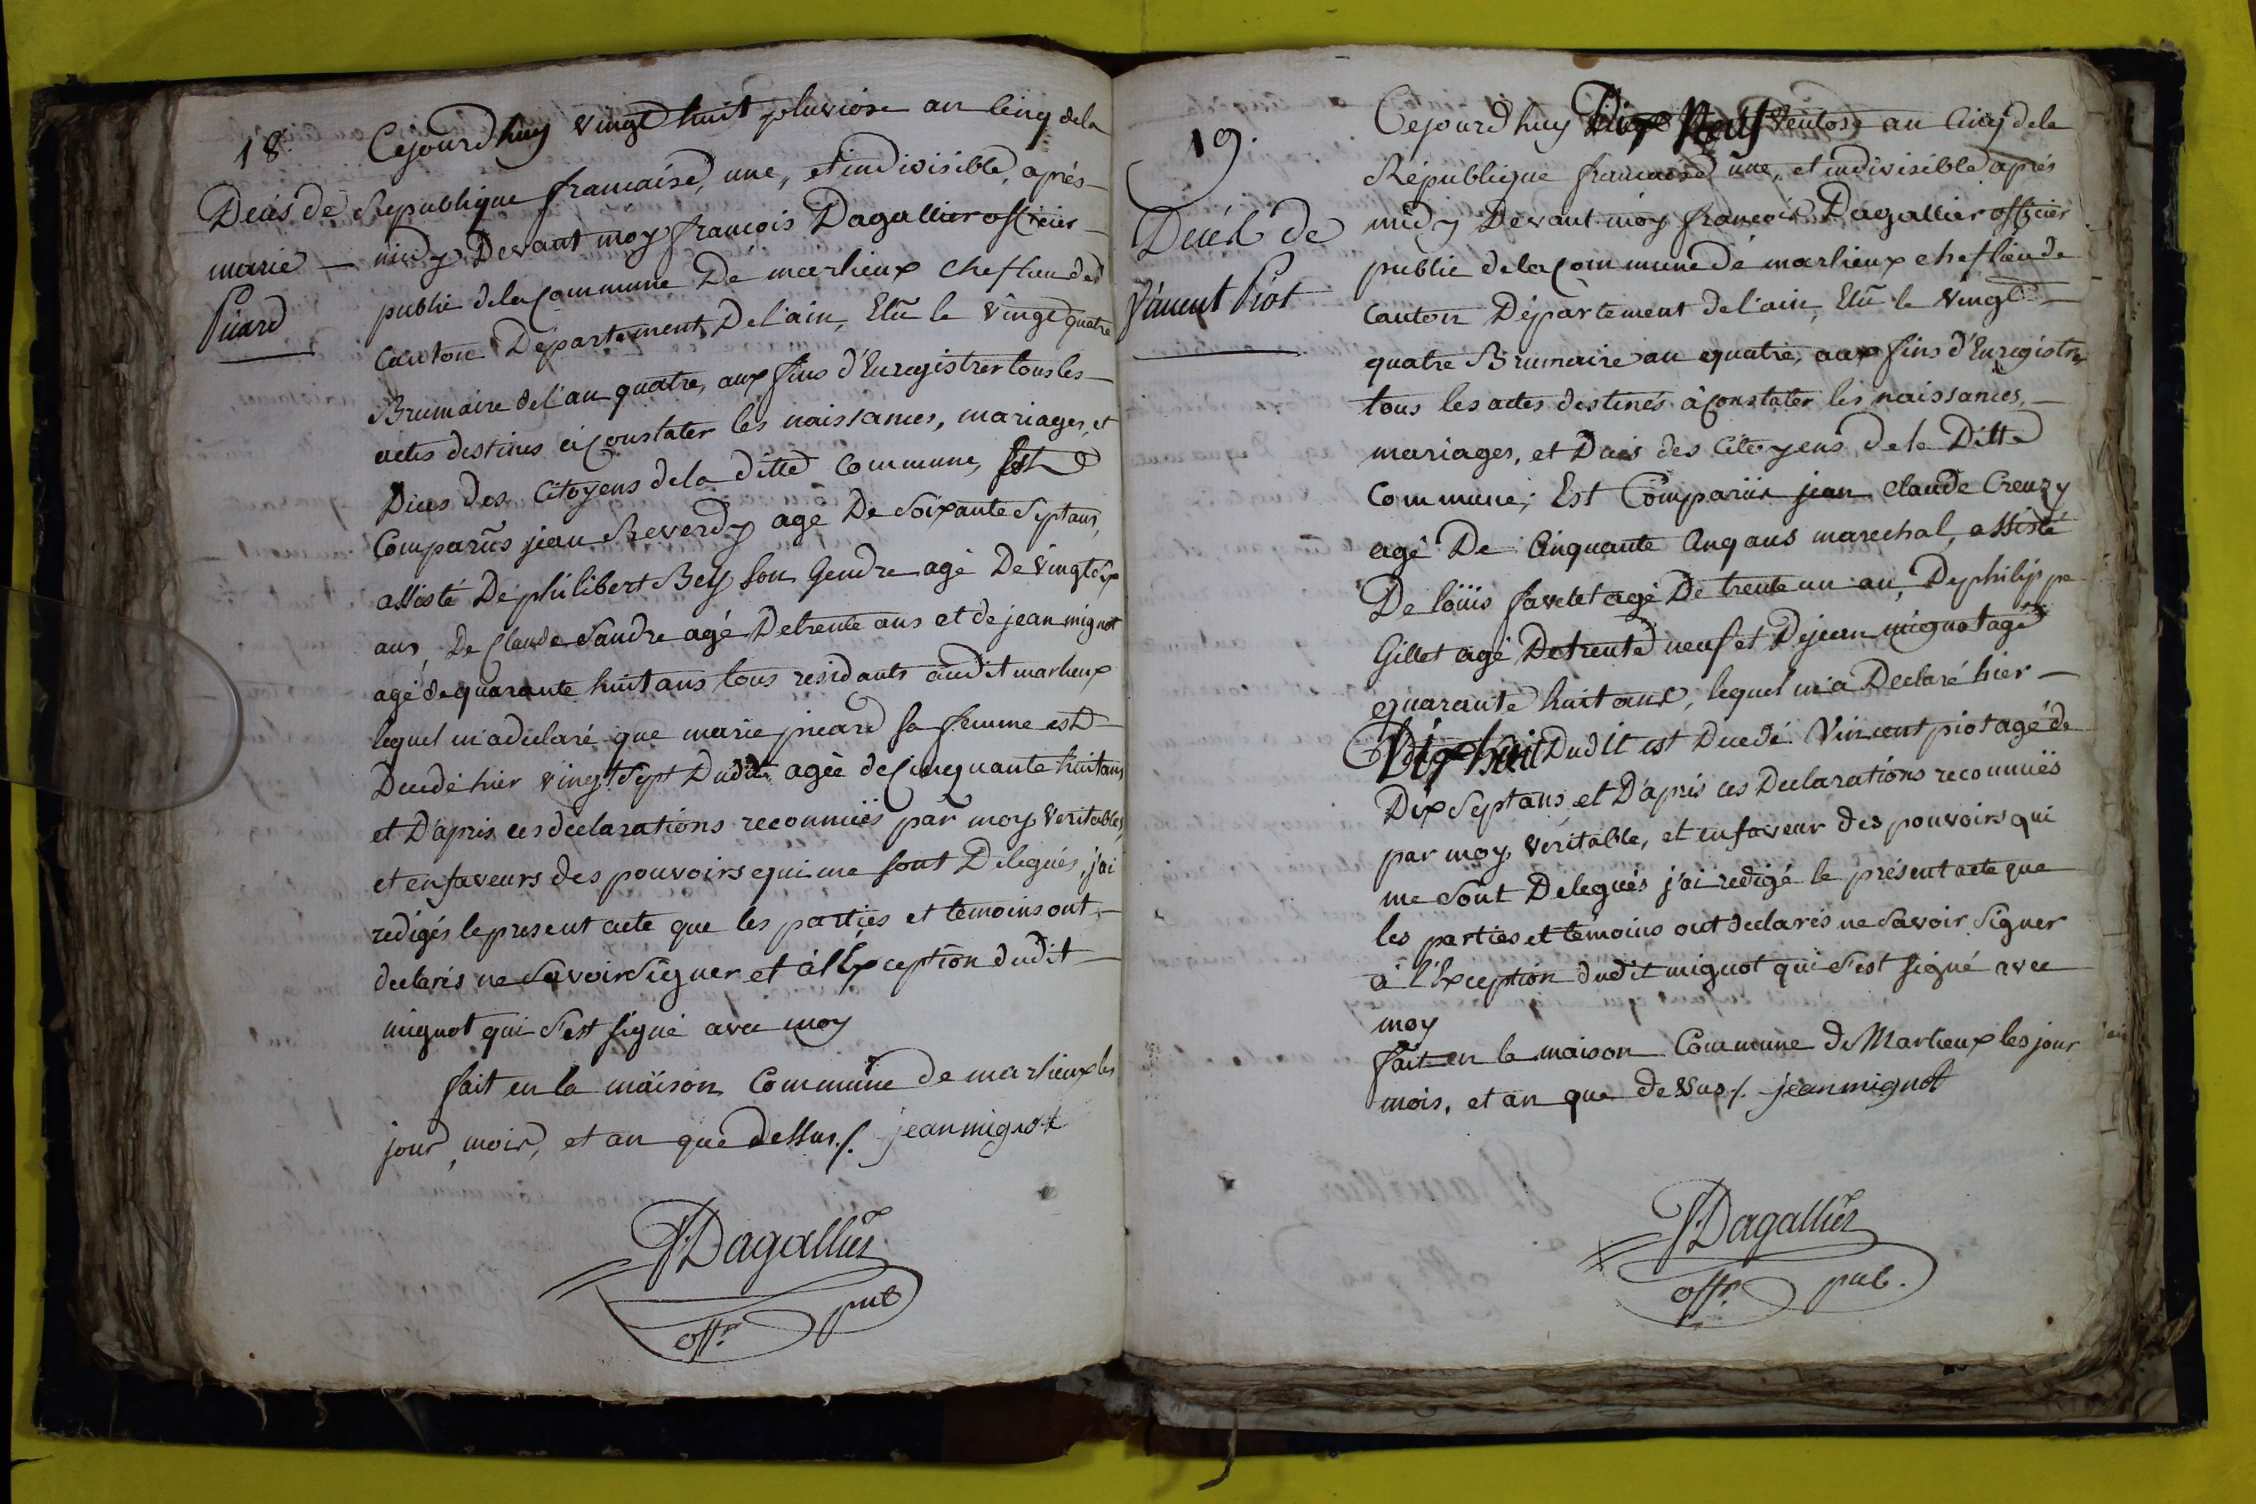 18.
Décés de
marie
Picard
Cejourdhuy vingt huit pluviose an cinq dela
Republique francaise, une, et indivisible, aprés
midy Devant moy francois Dagallier officier
public dela Commune De marlieux chef lieu de
canton Département De l'ain, Elû le vingt quatre
Brumaire del'an quatre, aux fins d'Enregistrer tous les
actes destinés à Constater les naissances, mariages, et
Dicès des Citoyens dela ditte Commune, Est
Comparûs jean Reverdy agé De Soixante Sept ans,
assisté De philibert Bey son Gendre agé De vingt six
ans, De Claude Sandre agé De trente ans et de jean mignot
agé de quarante huit ans tous residants audit marlieux
lequel m'a declaré que marie picard sa femme est
Decedé hier vingt Sept Dudit agée de Cinquante huit ans
et D'apris ces declarations reconnuës par moy veritables,
et en faveurs des pouvoirs qui me sont Delegués, j'ai
redigés le present acte que les parties et temoins ont
declarés ne Savoir Signer et à l'Exception dudit
mignot qui s'est signé avec moy
fait en la maison Commune de marlieux les
jour, mois, et an que dessus ./. jean mignot
F Dagallier
offr pub
19.
Décés de
Vincent Piot
Cejourdhuy Dix Neuf Ventose an Cinq dela
République francaise une, et indivisible aprés
midy Devant moy francois Dagallier officier
public dela Commune de marlieux chef lieu de
Canton Département de l'ain, Elû le Vingt
quatre Brumaire an quatre, aux fins d'Enregistrer
tous les actes destinés à Constater les naissances,
mariages, et Dicés des Citoyens de la Ditte
Commune; Est Comparûs jean Claude Creuzy
agé De Cinquante Cinq ans marechal, assisté
De loüis favelet agé De trente un an, De philippe
Gillet agé De trente neuf et De jean mignot agé
quarante huit ans, lequel m'a Declaré hier
Dix huit Dudit est Decedé Vincent piot agé de
Dix Sept ans, et D'apris ces Declarations reconnuës
par moy, veritable, et en faveur des pouvoirs qui
me sont Delegués j'ai redigé le présent acte que
les parties et temoins ont declarés ne Savoir Signer
à l'Exception dudit mignot qui s'est signé avec
moy
fait en la maison Commune de Marlieux les jour
mois, et an que de sus ./. jean mignot
F Dagallier
offr pub.